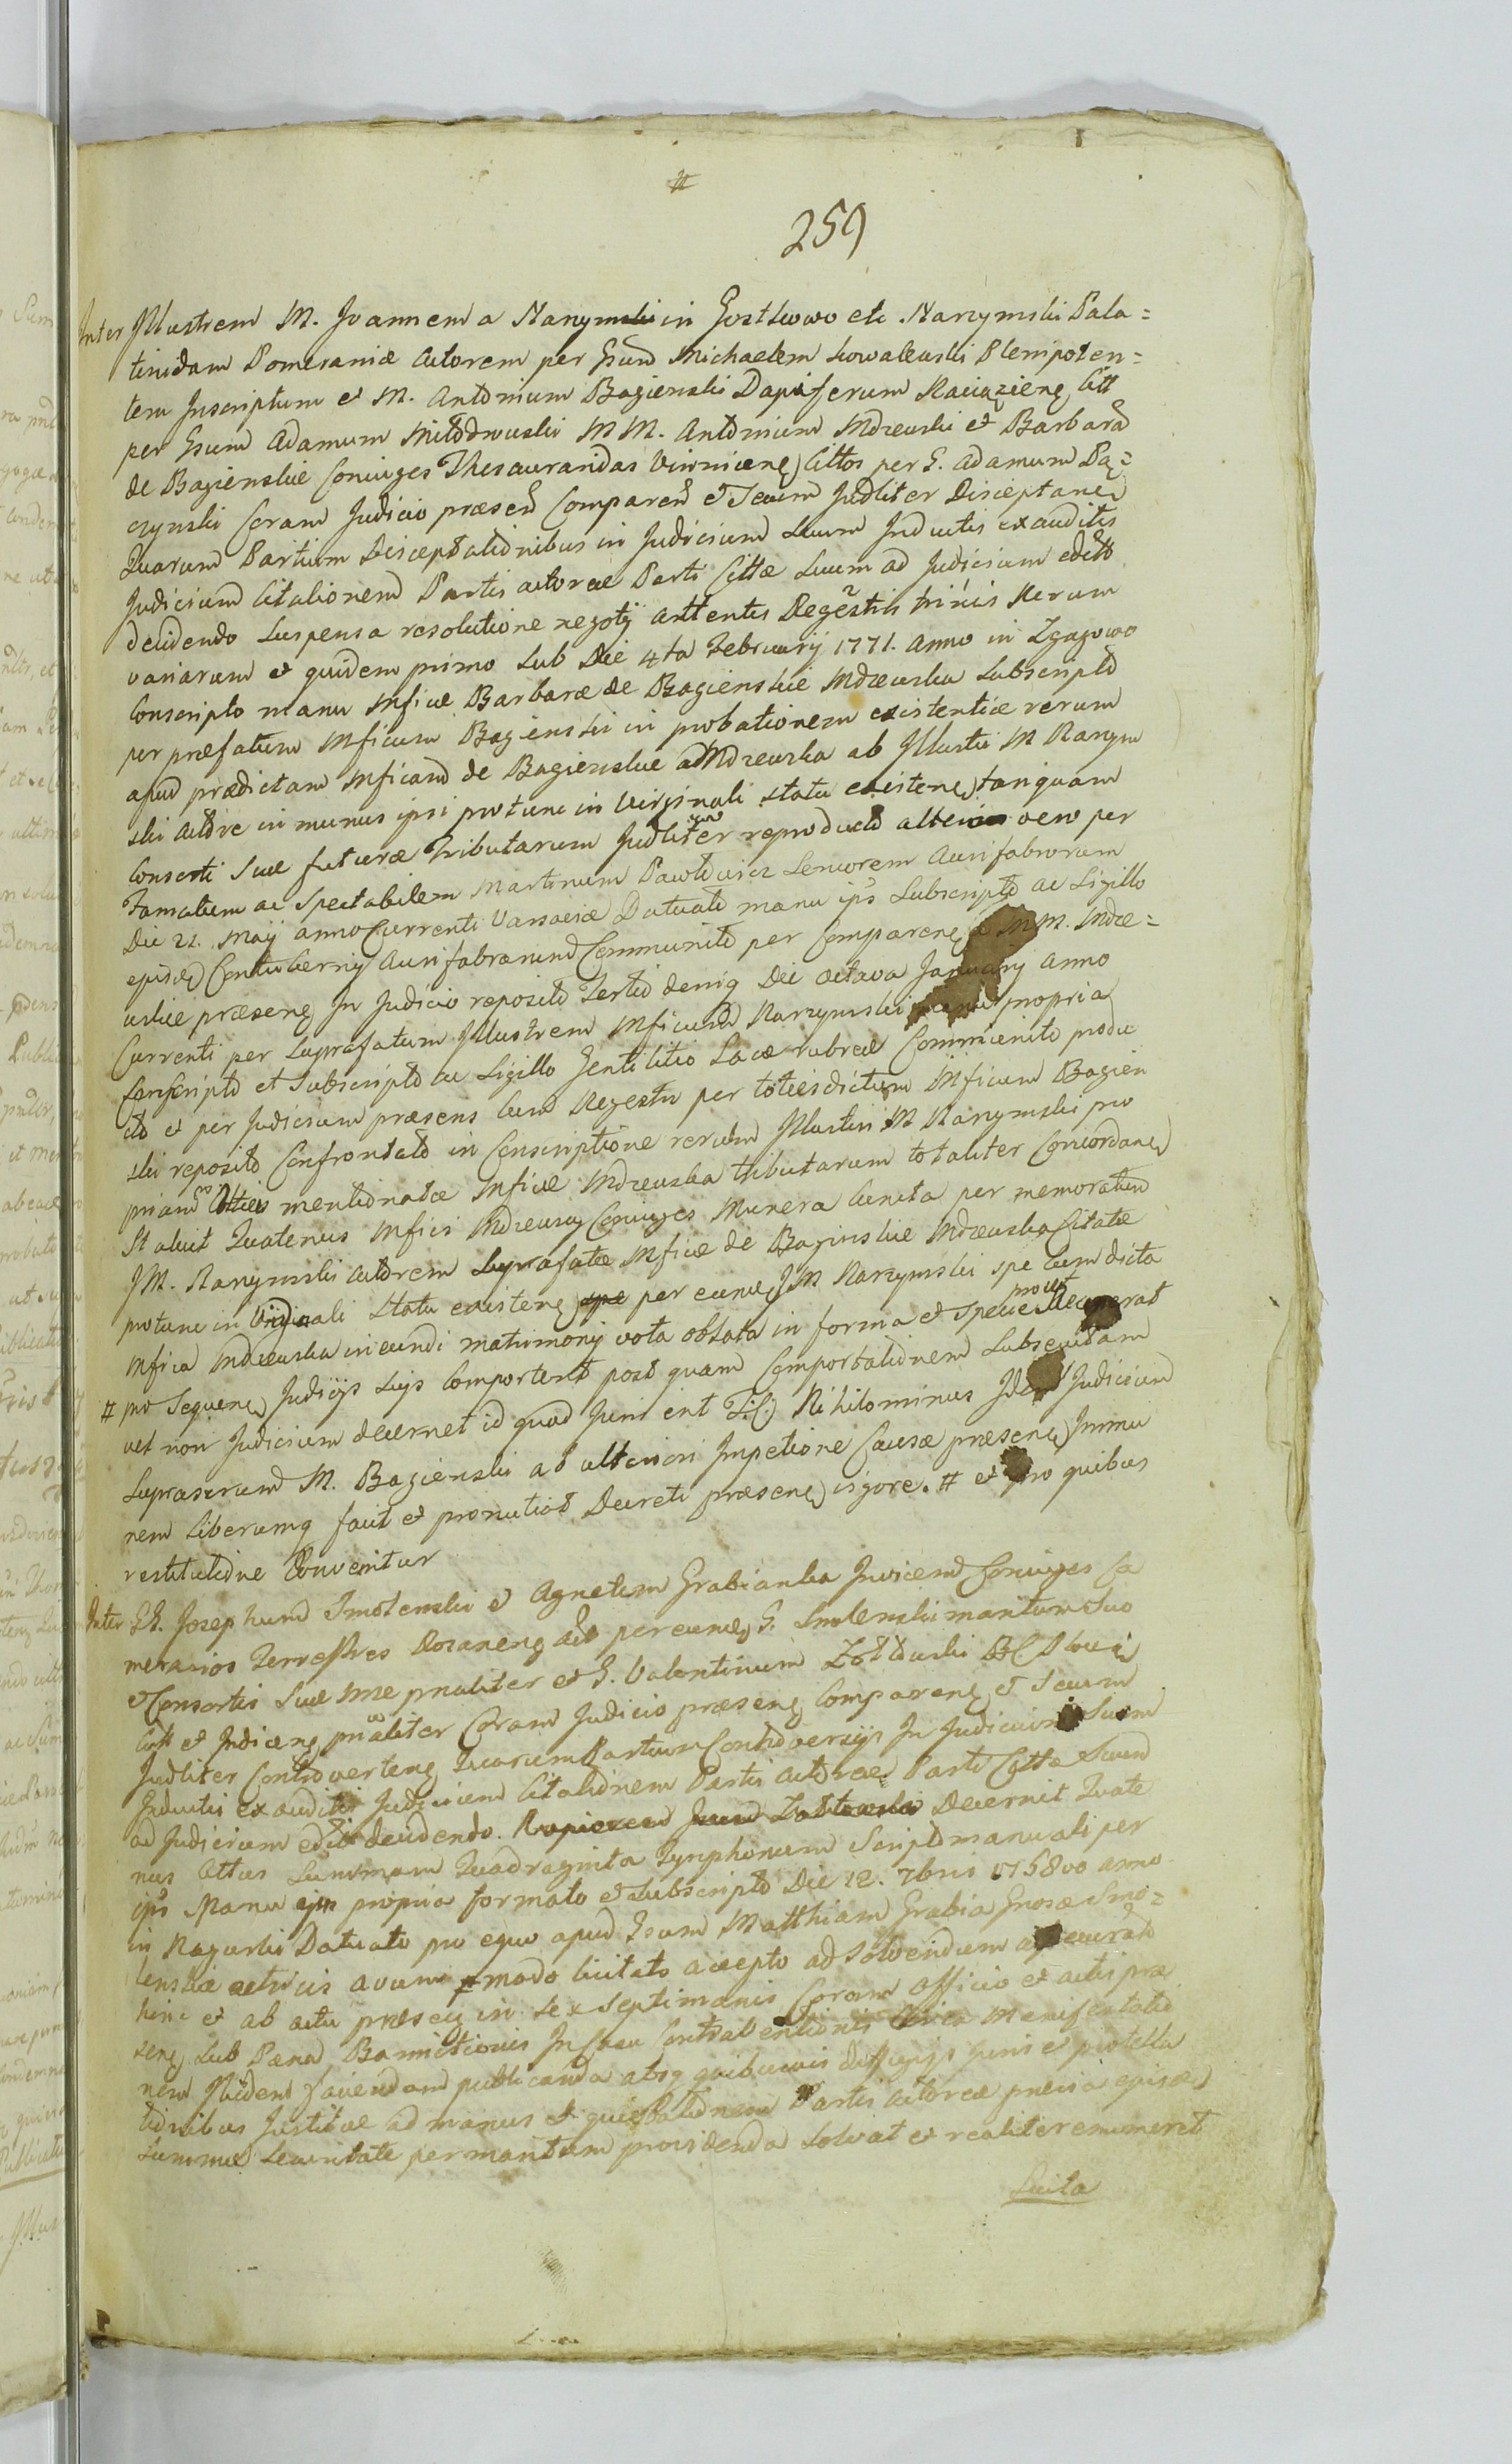 #
259
Inter Jllustrem M. Joannem a Narzymski in Gostkowo etc. Narzymski Pala=
tinidam Pomeraniæ Actorem per Gsum Michaelem Kowalewski Plenipoten=
tem Inscriptum et M. Antonium Bagienski Dapiferum Raciązieng Citt
per Gsum Adamum Miłodrowski MM. Antonium Mdzewski et Barbarã
de Bagienskie Coniuges Thesaurandas Citтos per G. Adamum Pa=
czynski Coram Judicio præsen Comparen et Secum Judliter Disceptanes
Quarum Partium Disceptationibus in Judicium Suum Inductis exauditis
Judicium Citationem Partis actoreæ Parti Cittæ Suum ad Judicium editt
decidendo Suspensa resolutione negotÿ Attentis Regestris trinis Rerum
variarum et quidem primo Sub Die 4ta Februarÿ 1771. Anno in Zgagowo
Conscripto manu Mficæ Barbaræ de Bagienskie Mdzewska Subscripto
per præfatum Mficum Bagienski in probationem existentiæ rerum
apud prædictam Mficam de Bagienskie Mdzewska ab Jllustri M Narzym
ski Actore in munus ipsi protunc in Virginali statu existene tanquam
Consorti Suæ futuræ tributarum Judliter reproducto altero vero per
Famatum ac Spectabilem Martinum Pawłowicz Seniorem Aurifabrorum
Die 21. Maÿ Anno Currenti Varsaviæ Datuato manu ips Subscripto ac Sigillo
ejusd Contubernÿ Aurifabrorum Communito per Comparene MM. Mdze=
wskie præseng In Judicio reposito Tertio deniq Die octava January Anno
Currenti per Suprafatum Jllustrem Mficum Narzymski manu propria
Conscripto et Subscripto ac Sigillo Gentilitio Lacæ rubreæ Communito produ
cto et per Judicium præsens Cum Regestro per totiesdictum Mficum Bagien
ski reposito Confrontato in Conscriptione rerum Jllustri M Narzymski pro
priarum mentionatæ Mficæ Mdzewska tributarum totaliter Concordane
Statuit Quatenus Mfici Mdzewscy Coniuges Munera Cuncta per memoratum
JM. Narzymski Actorem Suprafatæ Mficæ de Bagienskie Mdzewska Citatæ
protunc in Virginali Statu existeng spe per eund JM Narzymski spe cum dicta
Mfica Mdzewska ineundi matrimonÿ vota oblata in forma et Specie prout
# pro Sequene Judicÿs Suÿs Comportent post quam Comportationem Subsecutam
vel non Judicium decernet id quod Juris erit Nihilominus Idem Judicium
Suprascrum M. Bagienski ab ulteriori Impetitione Causæ præsene Immu
nem Liberumq facit et pronutiat Decreti præsene vigore. # et pro quibus
restitutione Convenitur
Inter GG. Josephum Smolenski et Agnetem Grabianka Invicem Coniuges Ca
merarios Terrestres Rozaneng Act per eund G. Smolenski maritum Suo
et Consortis Suæ nne pnaliter et G. Valentinum Zołtowski
Citt et Judiceng pnaliter Coram Judicio præseng Compareng et Secum
Judliter Controverteng Quarum Partium Controversÿs In Judicium Suum
Inductis exauditis Judicium Citationem Partis Actoreæ Parti Cittæ Suum
ad Judicium editt decidendo. Decernit Quate
nus Cittus Summam Quadraginta Tynphonum Scripto manuali per
ips Manu propria formato et Subscripto Die 12. 7bris 17 Anno
in Datuato pro equo apud Gsum Matthiam Grabia Gnosæ Smo=
lenskie actricis avum modo licitato accepto ad Solvendum
hinc et ab actu præseng in Sex Septimanis Coram Officio et actis præ
seng Sub Pæna Bannitionis In Casu Contraventionis Manifestatio
nem Ibidem faciendam publicanda absq quibusvis diffugÿs Juris et protella
tionibus Justitiæ ad manus et quietationem Partis Actoreæ prævia ejusd
Summæ Securitate per maritum providenda Solvat et realiter enumeret